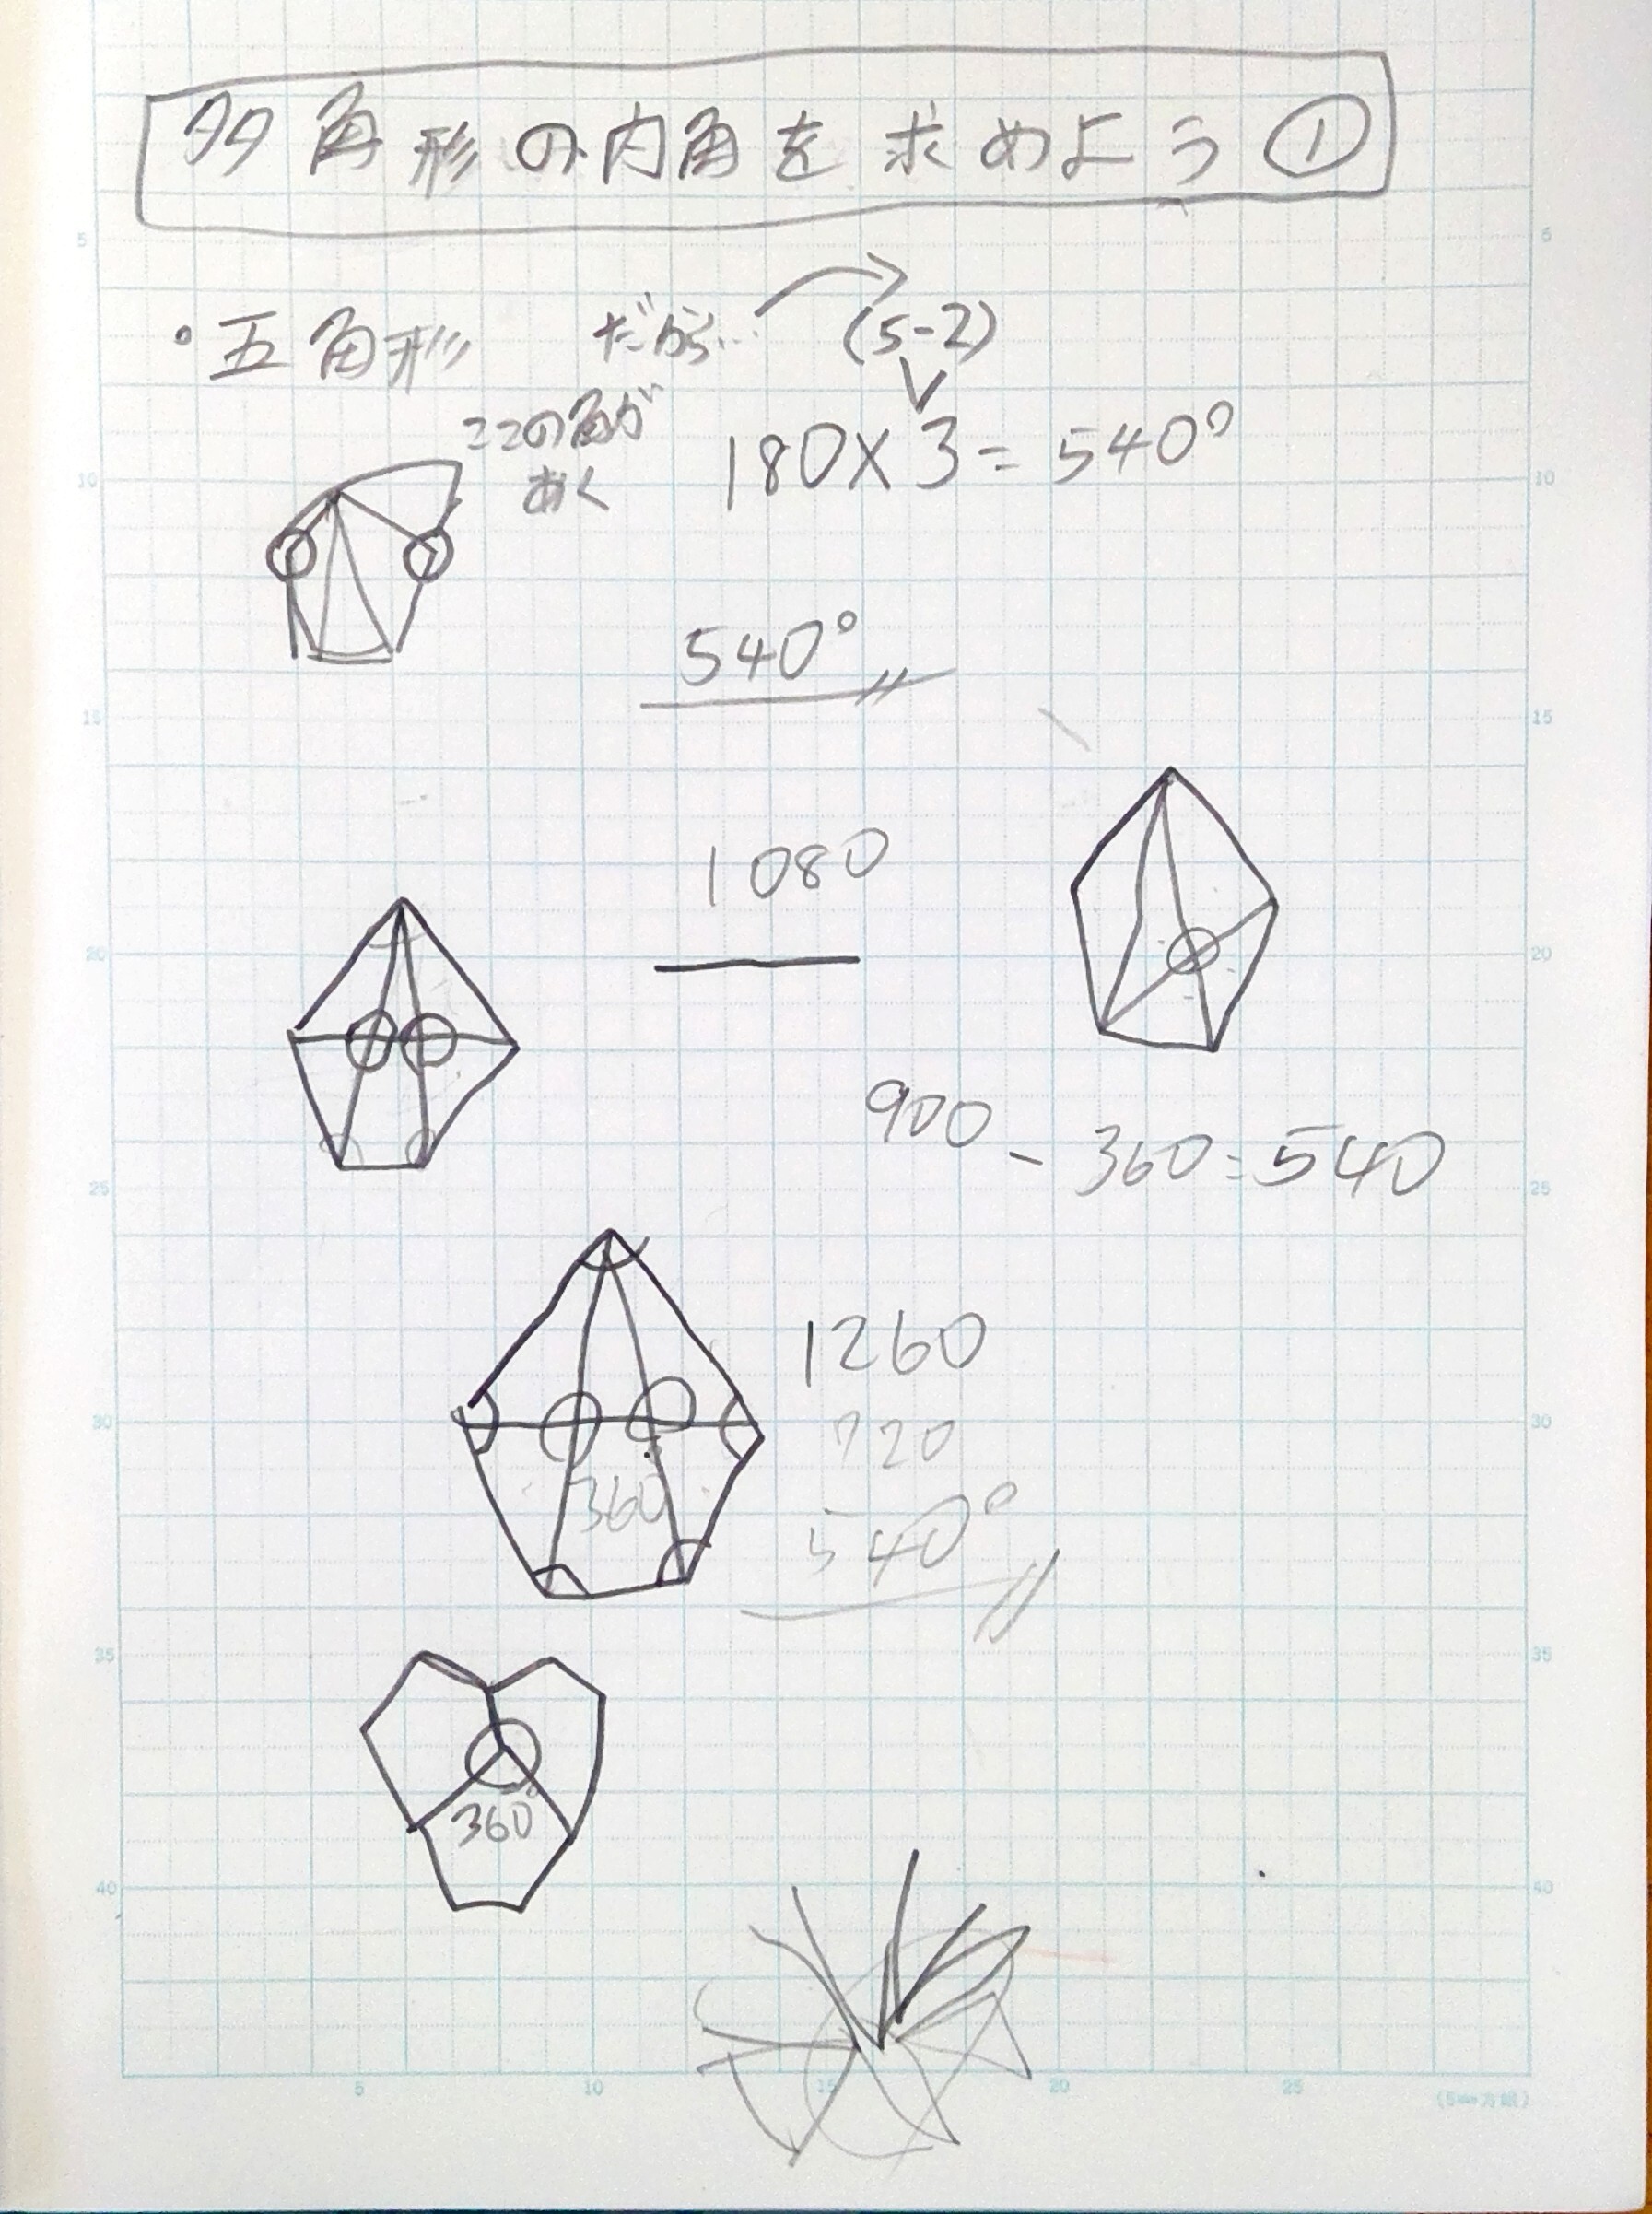 多角形の内角を求めよう①
・五角形 だから… (5-2)
ここの角が
あく
180×3=540°
540°
1080
900-360=540
1260
720
360
540°
360°
5 10 15 20 25 30 35 40
5 10 15 20 25 30 35 40
5 10 15 20 25